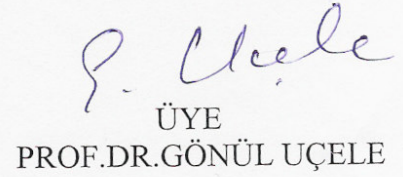 G. Uçele
ÜYE
PROF.DR.GÖNÜL UÇELE